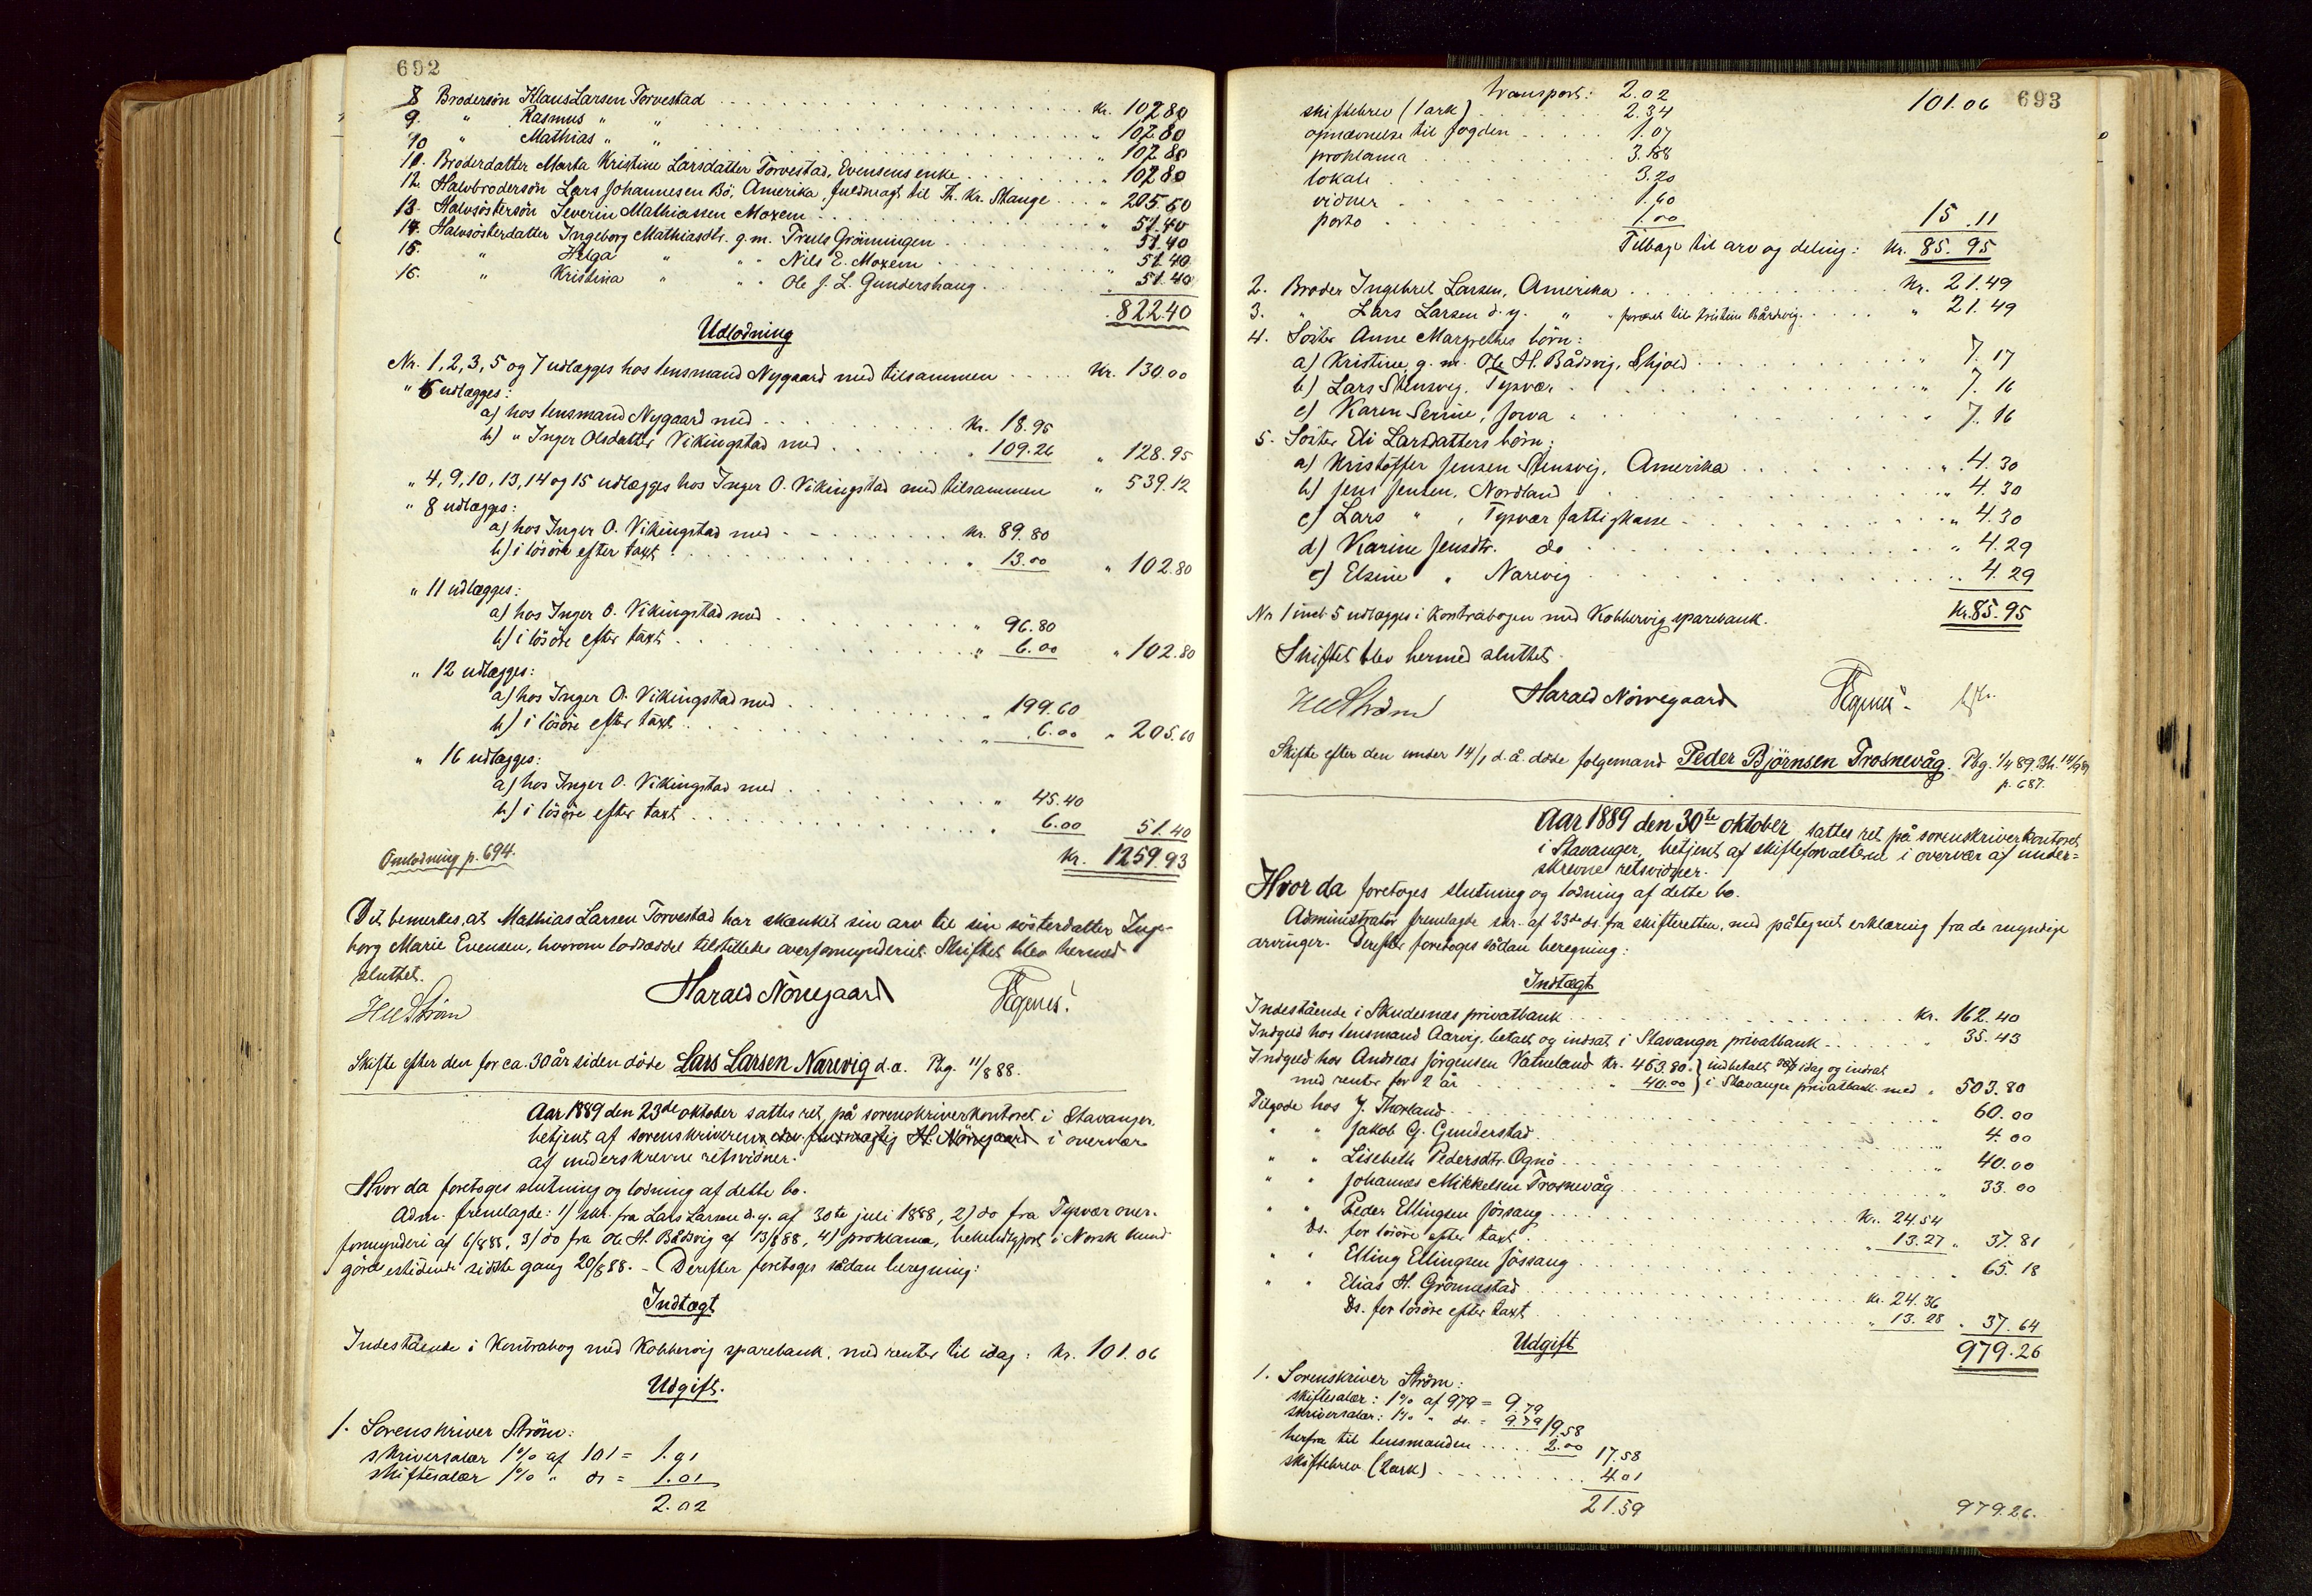 692
8 Brodersøn Klaus Larsen Torvestad . . . kr. 102.80
9. " Rasmus " " . . . " 102.80
10 " Mathias " " . . . " 102.80
11. Broderdatter Marta Kristine Larsdatter Torvestad, Evensens enke . . . " 102.80
12. Halvbrodersøn Lars Johannesen Bö, Amerika, fuldmagt til Th. Kr. Stange . . . " 205.60
13. Halvsöstersön Severin Mathiassen Moxem . . . " 51.40
14. Halvsösterdatter Ingeborg Mathiasdtr. g.m. Truls Grönningen . . . " 51.40
15. " Helga " " " Nils E. Moxem . . . 51.40
16. " Kristina " " " Ole J. L. Gundershaug . . . " 51.40
822.40
Udlodning
Nr. 1, 2, 3, 5 og 7 udlægges hos lensmand Nygaard med tilsammen . . . kr. 130.00
" 6 udlægges:
a) hos lensmand Nygaard med . . . kr. 18.95
b) " Inger Olsdatter Vikingstad med . . . " 109.26 " 128.95
" 4, 9, 10, 13, 14 og 15 udlægges hos Inger O. Vikingstad med tilsammen " 539.12
" 8 udlægges:
a) hos Inger O. Vikingstad med . . . kr. 89.80
b) i lösöre efter taxt . . . " 13.00 " 102.80
" 11 udlægges:
a) hos Inger O. Vikingstad med . . . " 96.80
b) i lösöre efter taxt . . . " 6.00 " 102.80
" 12 udlægges:
a) hos Inger O. Vikingstad med . . . " 199.60
b) i lösöre efter taxt . . . " 6.00 " 205.60
" 16 udlægges:
a) hos Inger O. Vikingstad med . . . " 45.40
b) i lösöre efter taxt . . . " 6.00 51.40
Omlodning p. 694. kr. 1259.93
Det bemerkes, at Mathias Larsen Torvestad har skænket sin arv til sin sösterdatter Inge-
borg Marie Evensen, hvorom lodseddel tilstilledes overformynderiet. Skiftet blev hermed
sluttet.
Harald Nörregaard
Skifte efter den for ca. 30 år siden döde Lars Larsen Narevig d.æ. Pbg. 11/8 88.
Aar 1889 den 23de oktober sattes ret på sorenskriverkontoret i Stavanger
betjent af sorenskriveren ved fuldmægtig H. Nörregaard i overvær
af underskrevne retsvidner.
Hvor da foretoges slutning og lodning af dette bo.
Adm. fremlagde: 1) skr. fra Lars Larsen d.y. af 30te juli 1888, 2) do fra Tysvær over-
formynderi af 6/8 88, 3) do fra Ole H. Bådsvig af 13/8 88, 4) proklama, bekjendtgjort i Norsk kund-
görelsestidende sidste gang 20/8 88. - Derefter foretoges sådan beregning:
Indtægt
Indestående i Kontrabog med Kobbervig sparebank, med renter til idag: kr. 101.06
Udgift.
1. Sorenskriver Ström:
skriversalær 1% af 101 = 1.01
skiftesalær 1% " ds = 1.01
2.02
693
Transport: 2.02 101.06
skiftebrev (1 ark) . . . 2.34
opnævnelse til fogden . . . 1.07
proklama . . . 3.88
lokale . . . 3.20
vidner . . . 1.60
porto . . . 1.00 15.11
Tilbage til arv og deling: kr. 85.95
2. Broder Ingebret Larsen, Amerika . . . kr. 21.49
3. " Lars Larsen d.y. " " Kristine Bådsvig . . . " 21.49
4. Söster Anne Margrethes börn:
a) Kristine g.m. Ole H. Bådsvig, Skjold . . . " 7.17
b) Lars Stensvig, Tysvær . . . " 7.16
c) Karen Serine, Jorva . . . " 7.16
5. Söster Eli Larsdatters börn:
a) Kristoffer Jensen Stensvig, Amerika . . . " 4.30
b) Jens Jensen, Nordland . . . " 4.30
c) Lars " , Tysvær fattigkasse . . . " 4.30
d) Karine Jensdtr. do . . . " 4.29
e) Elsine " Narevig . . . " 4.29
Nr. 1 incl. 5 udlægges i Kontrabogen med Kobbervig sparebank. kr. 85.95
Skiftet blev hermed sluttet.
Harald Nörregaard
Skifte efter den under 14/1 d.å. döde folgemand Peder Björnsen Trosnevåg. Pbg. 1/4 89. Bh. 14/9 89
p. 687.
Aar 1889 den 30te oktober sattes ret på sorenskriverkontoret
i Stavanger, betjent af skifteforvalteren i overvær af under-
skrevne retsvidner.
Hvor da foretoges slutning og lodning af dette bo.
Administrator fremlagde skr. af 23de ds. fra skifteretten, med påtegnet erklæring fra de myndige
arvinger. Derefter foretoges sådan beregning:
Indtægt
Indestående i Skudesnæs privatbank . . . kr. 162.40
Indgæld hos lensmand Aarvig, betalt og indsat i Stavanger privatbank . . . " 35.43
Indgæld hos Andreas Jörgensen Vatneland kr. 463.80. } indbetalt idag og indsat
med renter for 2 år . . . " 40.00 } i Stavanger privatbank med " 503.80
Tilgode hos J. Thorland . . . " 60.00
" " Jakob G. Gunderstad . . . 4.00
" " Lisebeth Pedersdtr. Ognö . . . " 40.00
" " Johannes Mikkelsen Trosnevåg . . . " 33.00
" " Peder Ellingsen Jössang . . . kr. 24.54
Ds. for lösöre efter taxt . . . " 13.27 " 37.81
" " Elling Ellingsen Jössang . . . " 65.18
" " Elias H. Grönnestad . . . kr. 24.36
Ds. for lösöre efter taxt . . . " 13.28 " 37.64
979.26
Udgift
1. Sorenskriver Ström:
skiftesalær: 1% af 979 = 9.79
skriversalær: 1% " ds. = 9.79 19.58
herfra til lensmanden . . . 2.00 17.58
skiftebrev (2 ark) . . . 4.01
21.59 979.26.